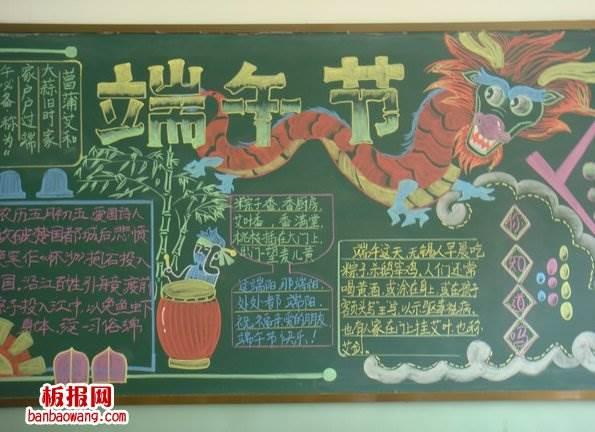 菖蒲艾和
大蒜旧时家
家户户过端
午必备称为"
端午节
农历五月初五 爱国诗人
次破楚国都城后悲愤
作《怀沙》抱石投入
国,沿江百姓引舟竞渡前
子投入江中,以免鱼虾下
身体,这一习俗绵
粽子香,香厨房
艾叶香,香满堂,
桃枝插在大门上,
出门一望麦儿黄
这端阳 那端阳
处处都端阳.
祝福亲爱的朋友
端午节快乐!
端午这天,无锡人早晨吃
粽子,人们还常
喝黄酒,或涂在身上,或在孩子
额头写王字,以示驱病,
也有人家在门上挂艾叶也称
艾剑.
你
知
道
吗
板报网
banbaowang.com